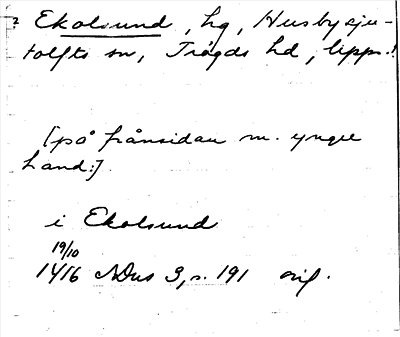 ? Ekolsund, hg, Husbysju-
tolfts sn, Trögds hd, Upps.l.
[på frånsidan m. yngre
hand:].
i Ekolsund
19/10
1416 NDus 3, s. 191 orig.